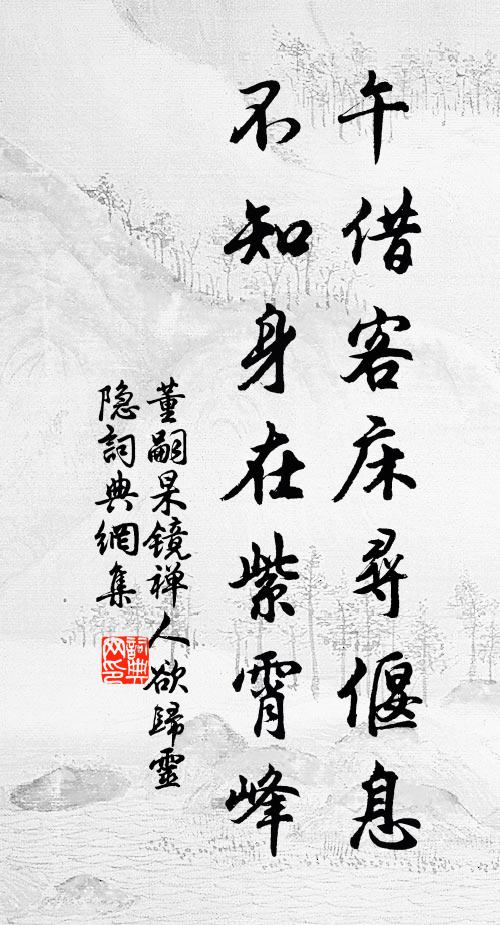 午借客床尋偃息
不知身在紫霄峰
董嗣杲镜禅人欲歸靈
隐詞典網集